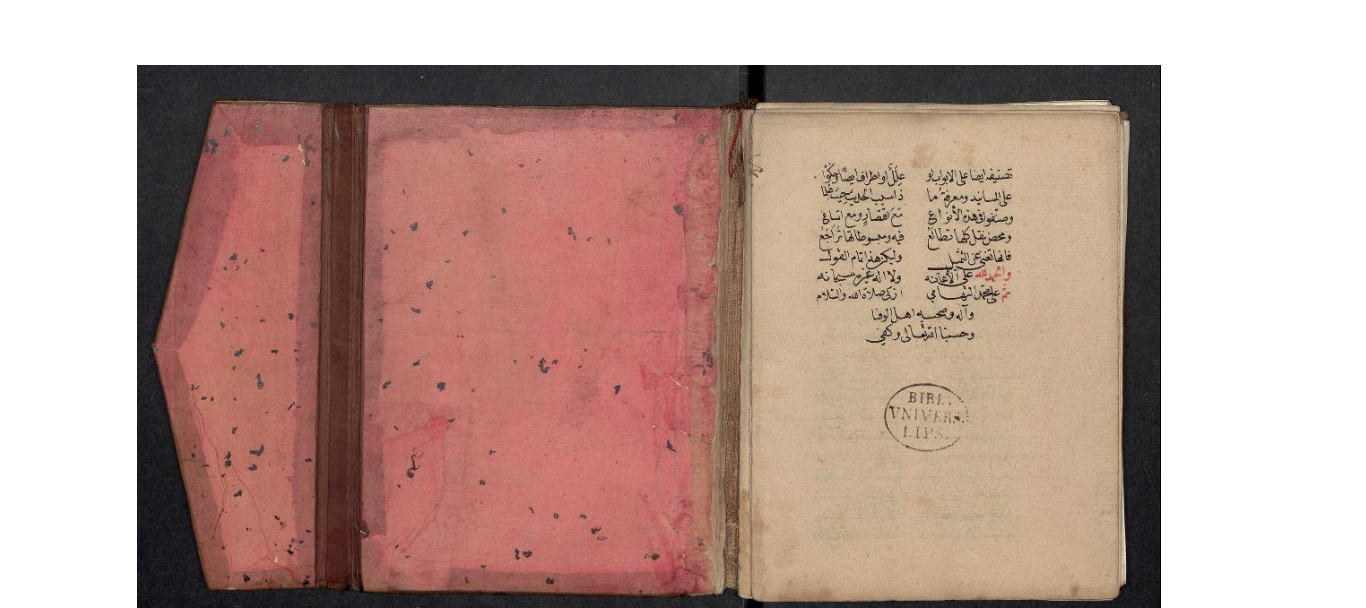 تصنيفه ايضا على الابواب او علل او اطراف ايضا
على المسانيد ومعرفة ما ذا سبب الحديث حيث
وصنفوا في هذه الأنواع مع اقتصار ومع اتساع
ومحض نقل كلها تطالع فيه ومبسوطاتها تراجع
فانها تغني عن وليكن هذا تمام القول
والحمد لله على الاعانه ولا اله غيره سبحانه
ثم على محمد التهامي ازكى صلاة الله والسلام
وآله وصحبه اهل الوفا
وحسبنا الله تعالى وكفى
BIBL.
VNIVERS.
LIPS.